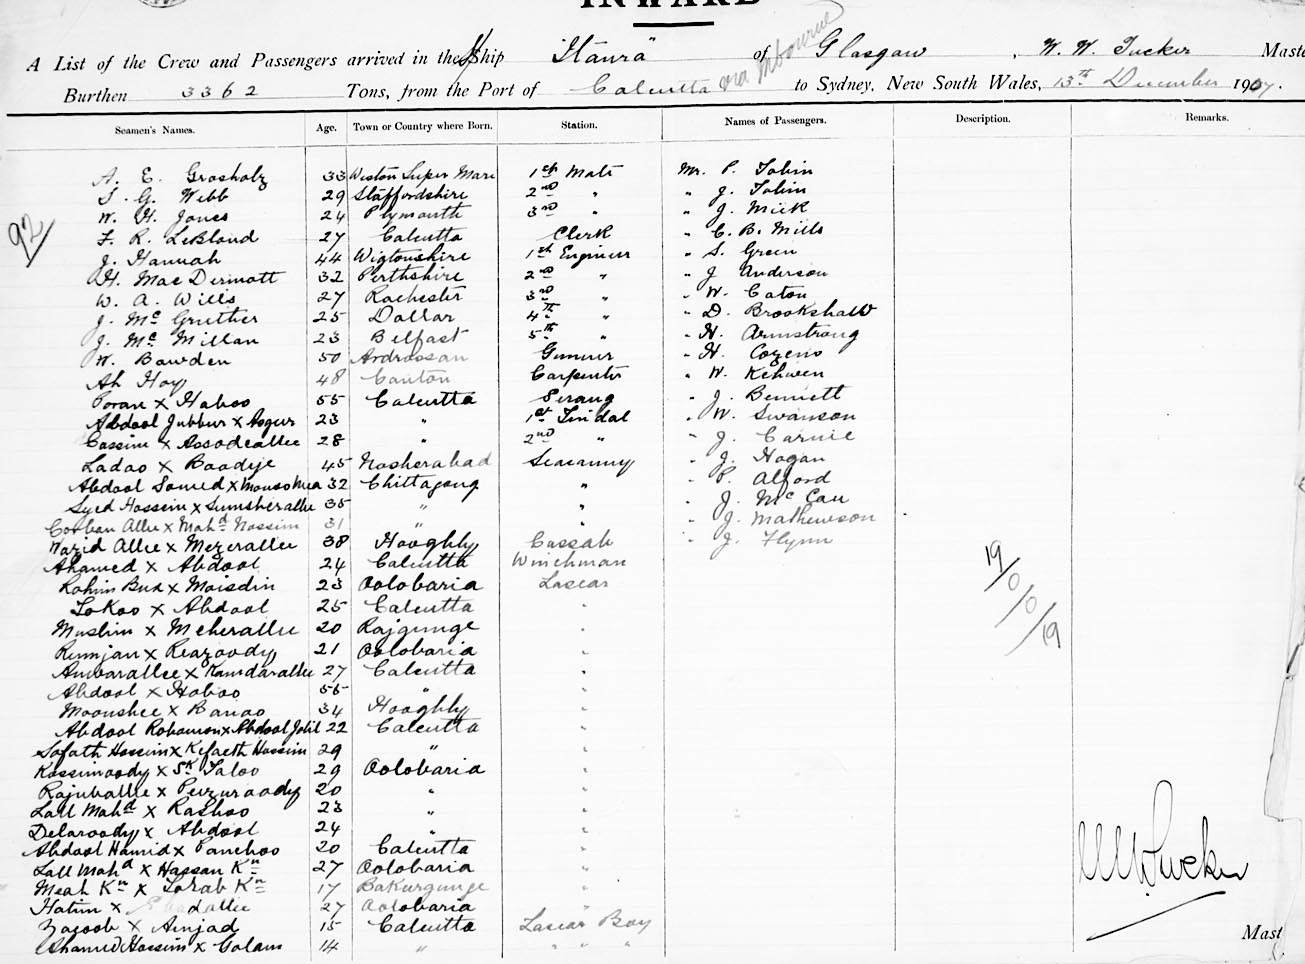 INWARD
A List of the Crew and Passengers arrived in the S/Ship "Itaura" of Glasgow, W. W. Tucker Maste
via Melbourne
Burthen 3362 Tons, from the Port of Calcutta to Sydney, New South Wales, 13th December 1907.
Seamen's Names. Age. Town or Country where Born. Station. Names of Passengers. Description. Remarks.
A. E. Grosholz 33 Weston Super Mare 1st Mate Mr. P. Tobin
J. G. Webb 29 Staffordshire 2nd " " J. Tobin
W. H. Jones 24 Plymouth 3rd " " J. Mick
92
F. R. LeBlond 27 Calcutta Clerk " C. B. Mills
J. Hannah 44 Wigtonshire 1st Engineer " S. Green
H. MacDermott 32 Perthshire 2nd " " J Anderson
W. A. Wills 27 Rochester 3rd " " W. Eaton
J. Mc Gruther 25 Dollar 4th " " D. Brookshaw
J. Mc Millan 23 Belfast 5th " " H. Armstrong
W. Bowden 50 Ardrossan Gunner " H. Cozens
Ah Hoy 48 Canton Carpenter " W.
Poran x Haboo 55 Calcutta Serang " J. Bennett
Abdool Jubbur x Asgur 23 " 1st Tindal " W. Swanson
Cassim x Assodeallee 28 " 2nd " " J. Carnie
Ladoo x Boodije 45 Nosherabad Seacunny " J. Hogan
Abdool Somed x 32 Chittagong " " P. Alford
Syed Hossein x Sumsherallee 35 " " " J. Mc Cau
Corban Allie x Mahd Nassim 31 " " " J. Mathewson
Wazid Allee x Mezerallee 38 Hooghly Cassab " J. Flynn
Ahamed x Abdool 24 Calcutta Winchman
19/0/0/19
Rohim Bux x Moisdin 23 Oolobaria Lascar
Tokoo x Abdool 25 Calcutta "
Muslim x Meherallee 20 Rajgunge "
Rumjan x Reazoody 21 Oolobaria "
Ambarallee x Kamdarallee 27 Calcutta "
Abdool x Haboo 55 " "
Moonshee x Banoo 34 Hooghly "
Abdool Rohamon x Abdool Jolil 22 Calcutta "
Sofath Hossein x Kefaeth Hossein 29 " "
Kassimoody x Sk Taloo 29 Oolobaria "
Rajuballie x Peuzuroody 20 " "
Lall Mahd x Rashoo 23 " "
Delaroody x Abdool 24 " "
Abdool Hamid x Panchoo 20 Calcutta "
Lall Mahd x Hassan Kn 27 Oolobaria "
Meah Kn x Torab Kn 17 Bakurgunge "
W W Tucker
Hatim x 27 Oolobaria "
Yacoob x Amjad 15 Calcutta Lascar Boy
Mast
Ahamed Hossein x Golam 14 " " " "